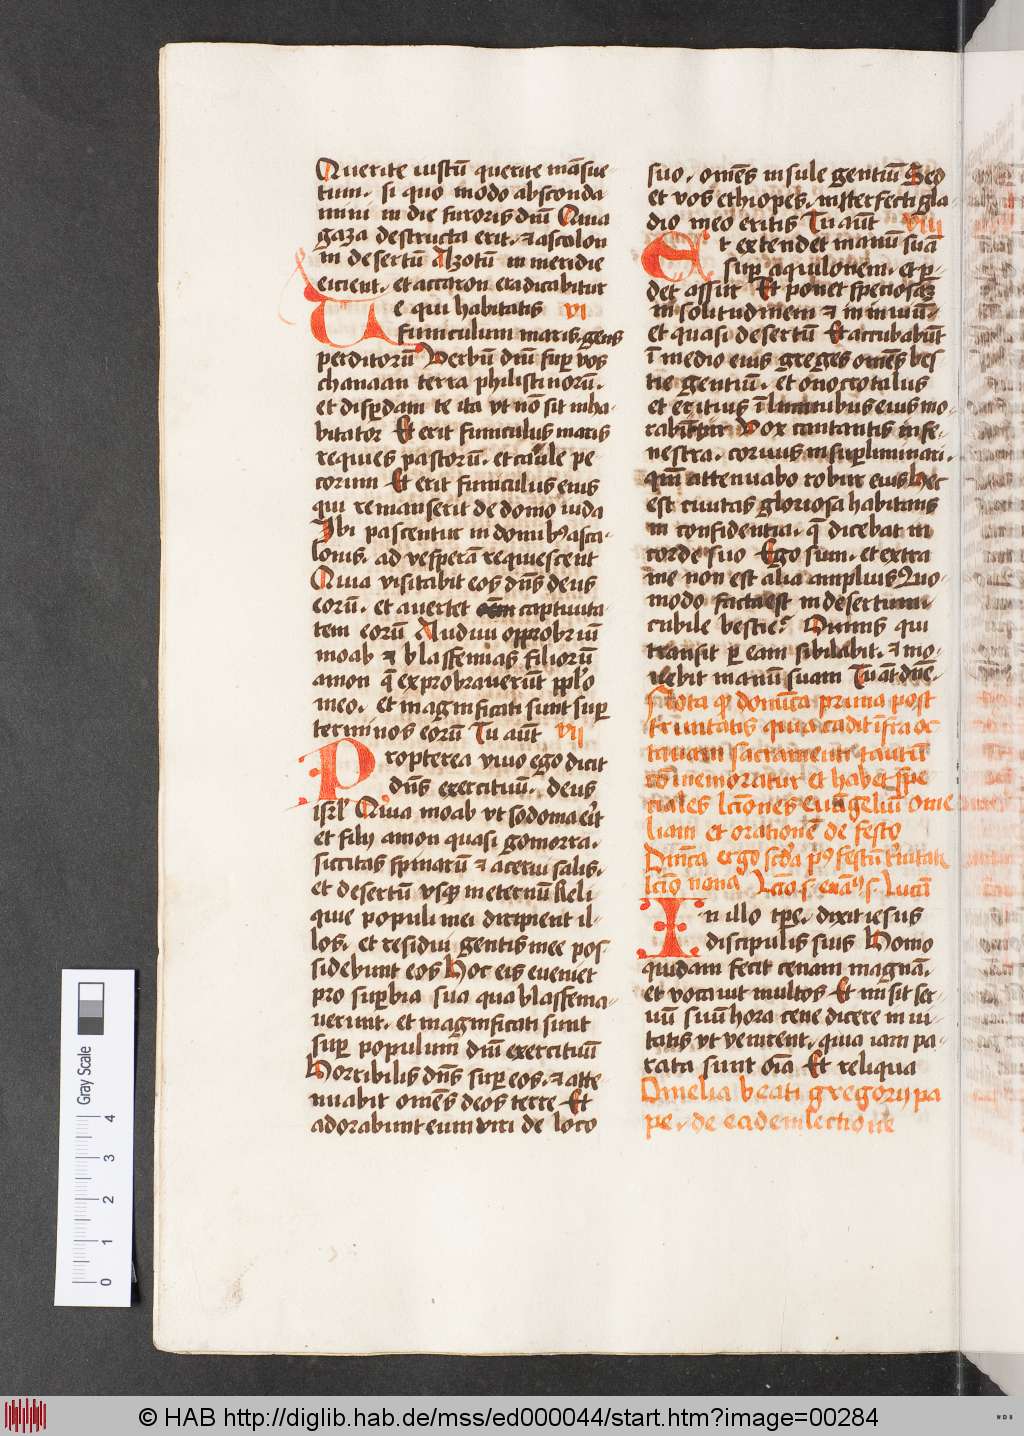 Querite iustū querite māsue-
tum. si quo modo absconda
mini in die furoris dn̄i Quia
gaza destructa erit. ⁊ ascolon
in desertū Azotū in meridie
eicient. et accaron eradicabitur
Ue qui habitatis vi
funiculum maris. gens
perditorū Verbū dn̄i sup̱ vos
chanaan terra philistinorū.
et disp̱dam te ita vt nō sit inha-
bitator Et erit funiculus maris
requies pastorū. et caule pe
corum Et erit funiculus eius
qui remanserit de domo iuda
Ibi pascentur in domibꝫ asca-
lonis. ad vesperā requiescent
Quia visitabit eos dn̄s deus
eorū. et auertet captiuita
tem eorū Audiui opprobriū
moab ⁊ blasfemias filiorū
amon q̄ exprobrauerūt pp̄lo
meo. et magnificati sunt sup̱
terminos eorū Tu aūt vii
Propterea viuo ego dicit
dn̄s exercituū. deus
isrl̄ Quia moab vt sodoma er̄t
et filij amon quasi gomorra.
siccitas spinarū ⁊ acerui salis.
et desertū vsqꝫ in eternū Reli
quie populi mei diripient il-
los. et residui gentis mee pos-
sidebunt eos Hoc eis eueniet
pro sup̱bia sua qua blasfema-
uerunt. et magnificati sunt
sup̱ populum dn̄i exercituū
Horribilis dn̄s sup̱ eos. ⁊ atte
nuabit omēs deos terre Et
adorabunt eum viri de loco
suo. omēs insule gentiū Sed
et vos ethiopes. interfecti gla-
dio meo eritis Tu aūt viii
Et extendet manū suā
sup̱ aquilonem. et p̱-
det assur Et ponet speciosaꝫ
in solitudinem ⁊ in inuiū.
et quasi desertū Et accubabūt
ī medio eius greges omēs bes
tie gentiū. et onocrotalus
et ericius ī liminibus eius mo-
rabūtur Vox cantantis in fe-
nestra. coruus in sup̱liminari.
qm̄ attenuabo robur eius Hec
est ciuitas gloriosa habitans
in confidentia. q̄ dicebat in
corde suo Ego sum. et extra
me non est alia amplius Quo-
modo facta est in desertum
cubile bestie. Omnis qui
transit p̱ eam sibilabit. ⁊ mo-
uebit manū suam Tu aūt dn̄e
Nota qꝫ domīca prima post
trinitatis quia cadit īfra oc
tauam sacramenti tantū
cōmemoratur et habet spē
ciales lc̄iones euangeliū ome
liam et orationē de festo
Dn̄ica ergo scd̄a pꝰ festū t̄nitatis
lc̄io nona Lc̄io s. euāꝫ s. Lucā
In illo tp̄e. dixit iesus
discipulis suis Homo
quidam fecit cenam magnā.
et vocauit multos Et misit ser-
uū suū hora cene dicere inui-
tatis vt venirent. quia iam pa-
rata sunt oīa Et reliqua
Omelia beati gregorij pa
pe. de eadem lectione
Gray Scale
0 1 2 3 4
© HAB http://diglib.hab.de/mss/ed000044/start.htm?image=00284